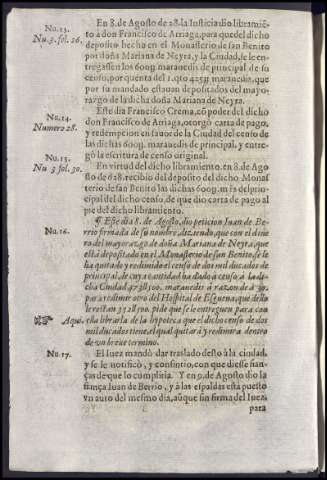 No.13.
Nu.3.fol.26.
En 8.de Agosto de 28.la Iusticia dio libramiẽ-
to à don Francisco de Arriaga, para que del dicho
deposito hecho en el Monasterio de san Benito
por doña Mariana de Neyra, y la Ciudad, se le en-
tregassen los 600y. maraedis de principal de su
censo, por quenta del 1.qto 425y maraedis, que
por su mandado estauan depositados del mayo-
razgo de la dicha doña Mariana de Neyra.
No.14.
Numero 28.
Este dia Francisco Crema, cõ poder del dicho
don Francisco de Arriaga, otorgò carta de pago,
y redempcion en fauor de la Ciudad del censo de
las dichas 600y. maraedis de principal, y entre-
gò la escritura de censo original.
No.15.
Nu 3 fol.30.
En virtud del dicho libramiento, en 8.de Ago-
sto de 628. recibio del deposito del dicho Monas-
terio de san Benito las dichas 600y. m̃s del princi-
pal del dicho censo de que dio carta de pago al
pie del dicho libramiento.
No.16.
¶ Este dia 8. de Agosto, dio peticion Iuan de Be-
rrio firmada de su nombre, diziendo, que con el dine
ro del mayorazgo de doña Mariana de Neyra, que
està depositado en el Monasterio de san Benito, se le
ha quitado y redimido el censo de dos mil ducados de
principal, de cuya cantidad ha dado à censo à la di-
cha Ciudad maraedis à razon de à
para redimir otro del Hospital de Esgueua, que del lo
le restan pide que se le entreguen para con
Aqui.
ella librarla de la hipoteca que el dicho censo de dos
mil ducados tiene, el qual quitarà y redimira dentro
de vn breue termino.
No.17.
El Iuez mandò dar traslado desto à la ciudad,
y se le notificò, y consintio, con que diesse fian-
ças de que lo cumpliria. Y en 9. de Agosto dio la
fiança Iuan de Berrio, y à las espaldas està puesto
vn auto del mismo dia, aũque sin firma del Iuez,
para